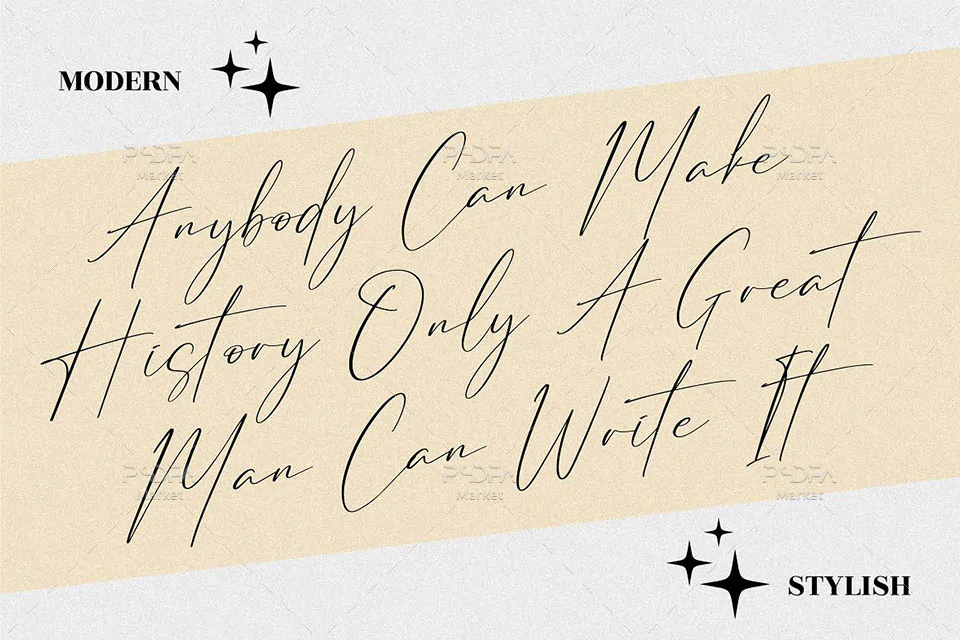 MODERN
Anybody Can Make
History Only A Great
Man Can Write It
STYLISH
PSDFA Market
PSDFA Market
PSDFA Market
PSDFA Market
PSDFA Market
PSDFA Market